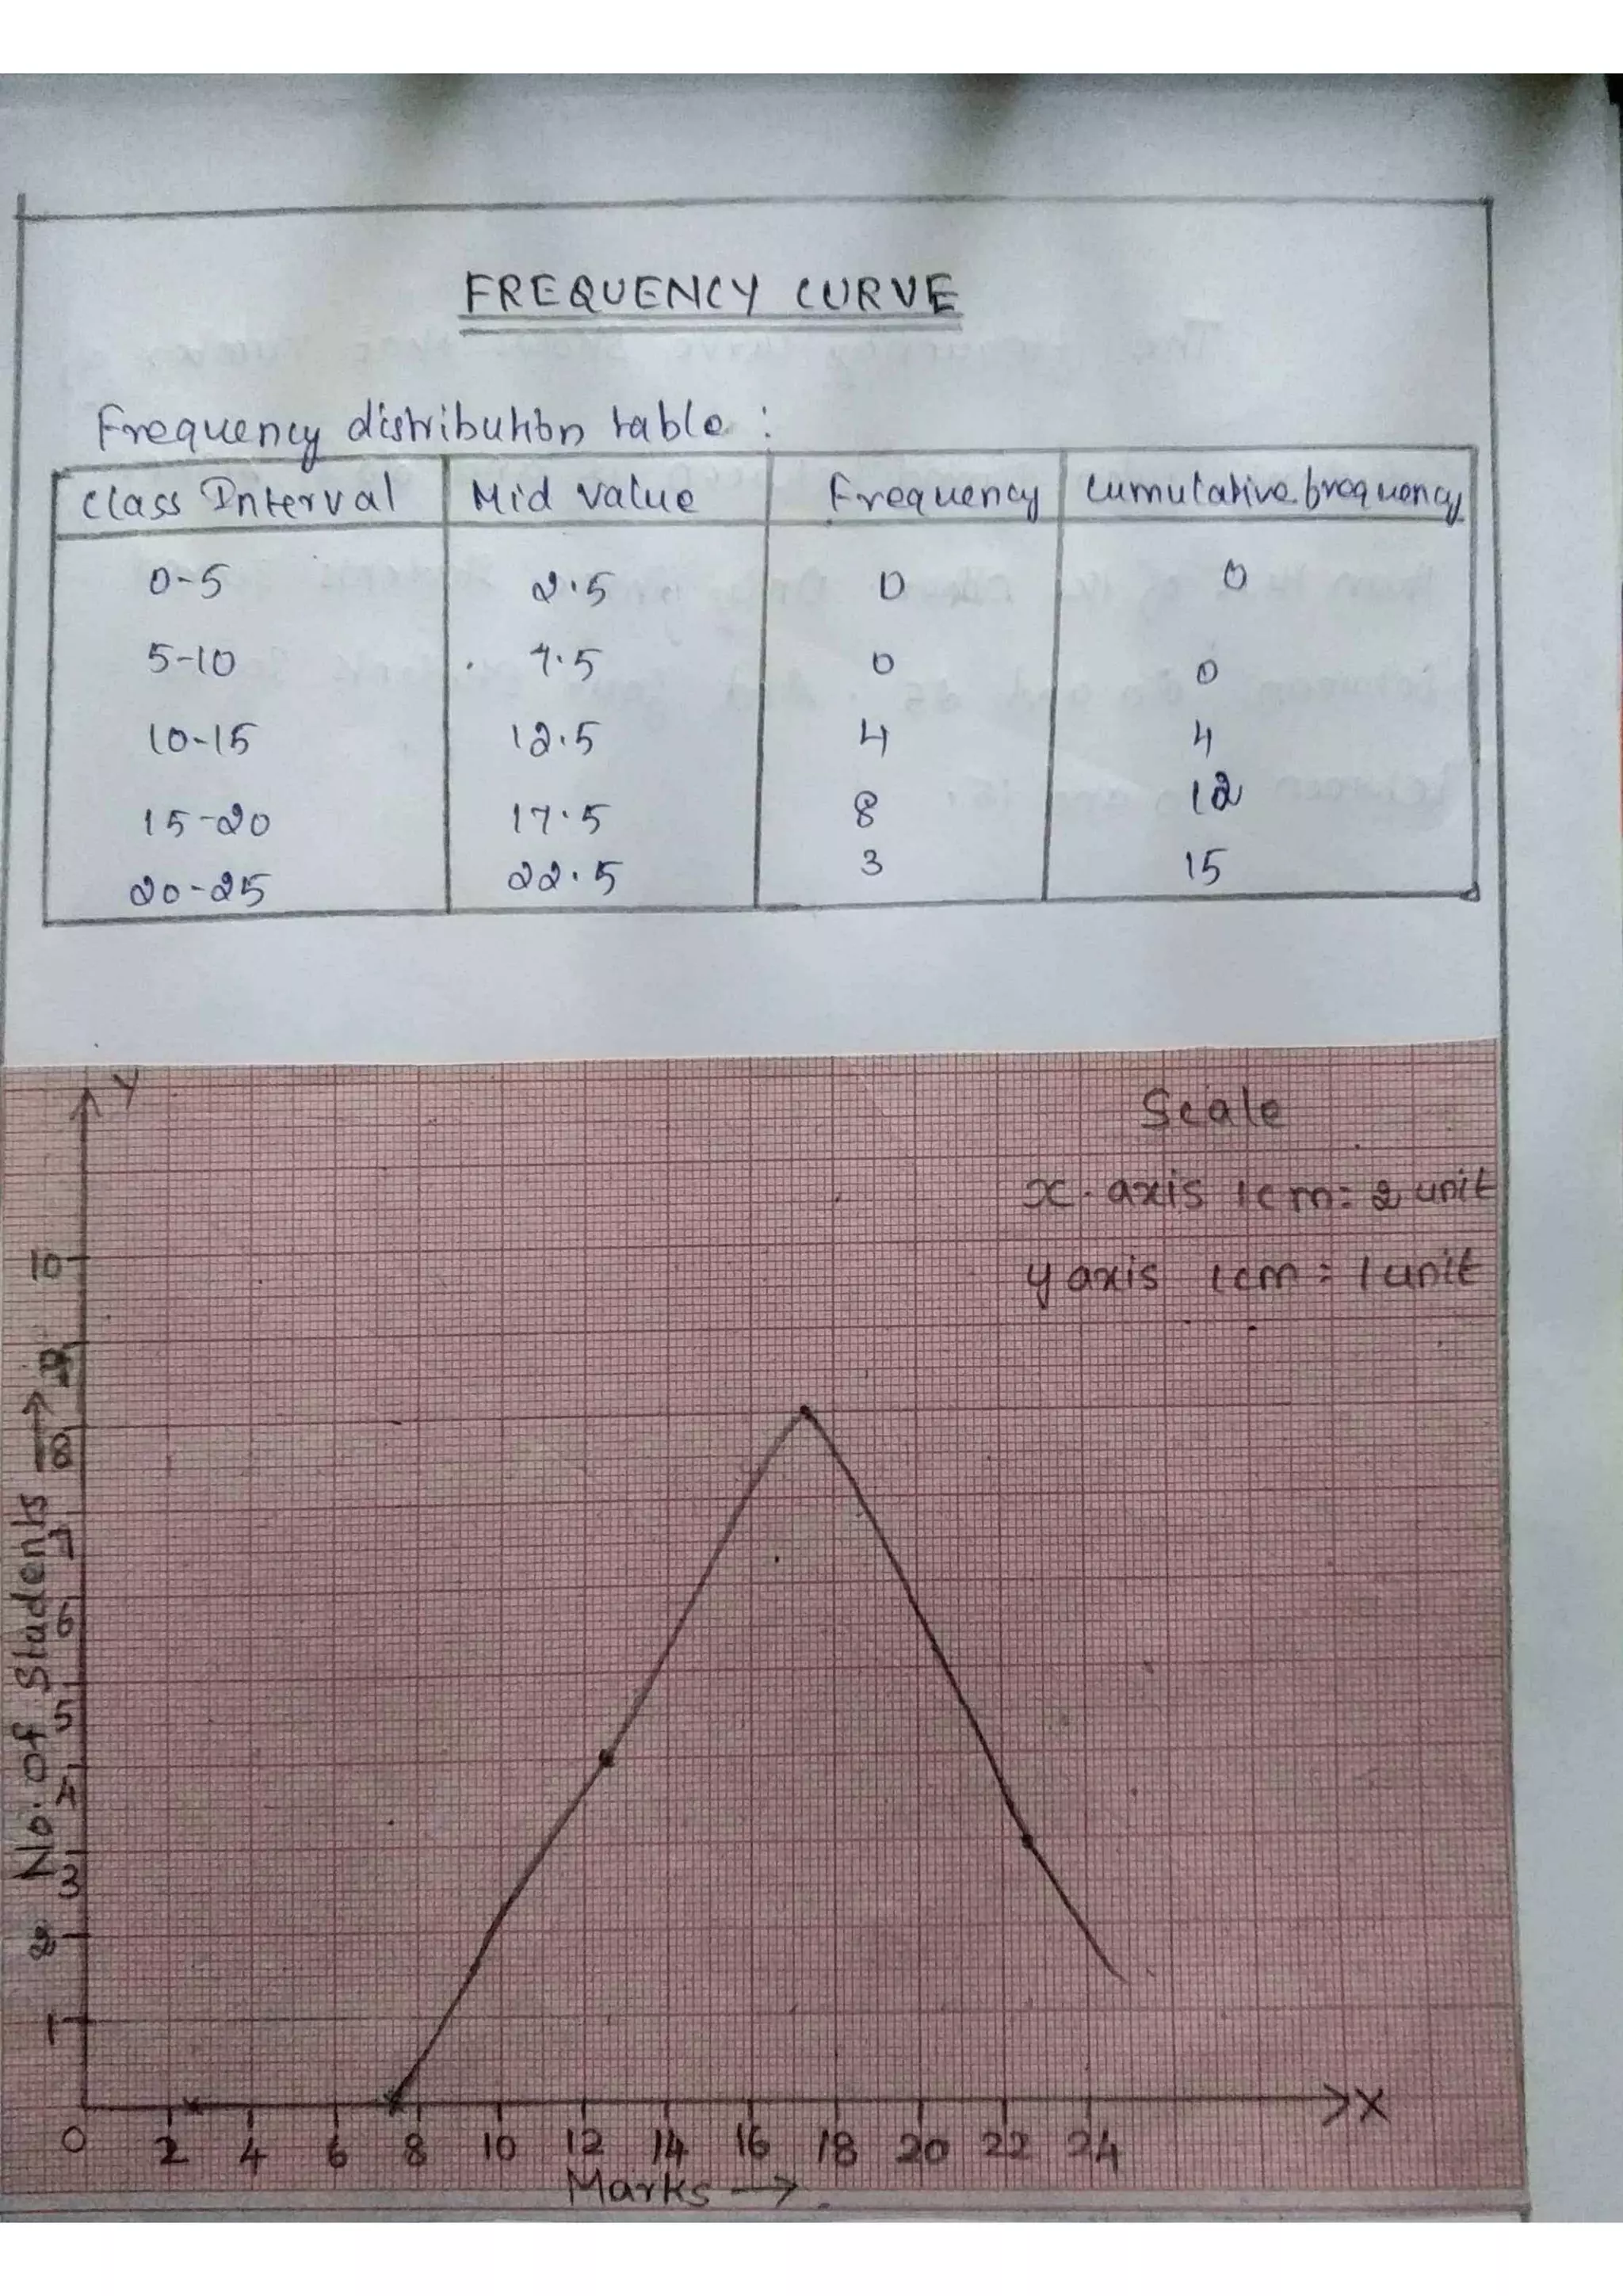 FREQUENCY CURVE
Frequency distribution table :
Class Interval Mid value Frequency Cumulative frequency
0-5 2.5 0 0
5-10 7.5 0 0
10-15 12.5 4 4
15-20 17.5 8 12
20-25 22.5 3 15
Y
Scale
x axis 1cm = 2 unit
y axis 1cm = 1 unit
10
9
8
7
6
5
4
3
2
1
No. of Students →
0 2 4 6 8 10 12 14 16 18 20 22 24
X
Marks →